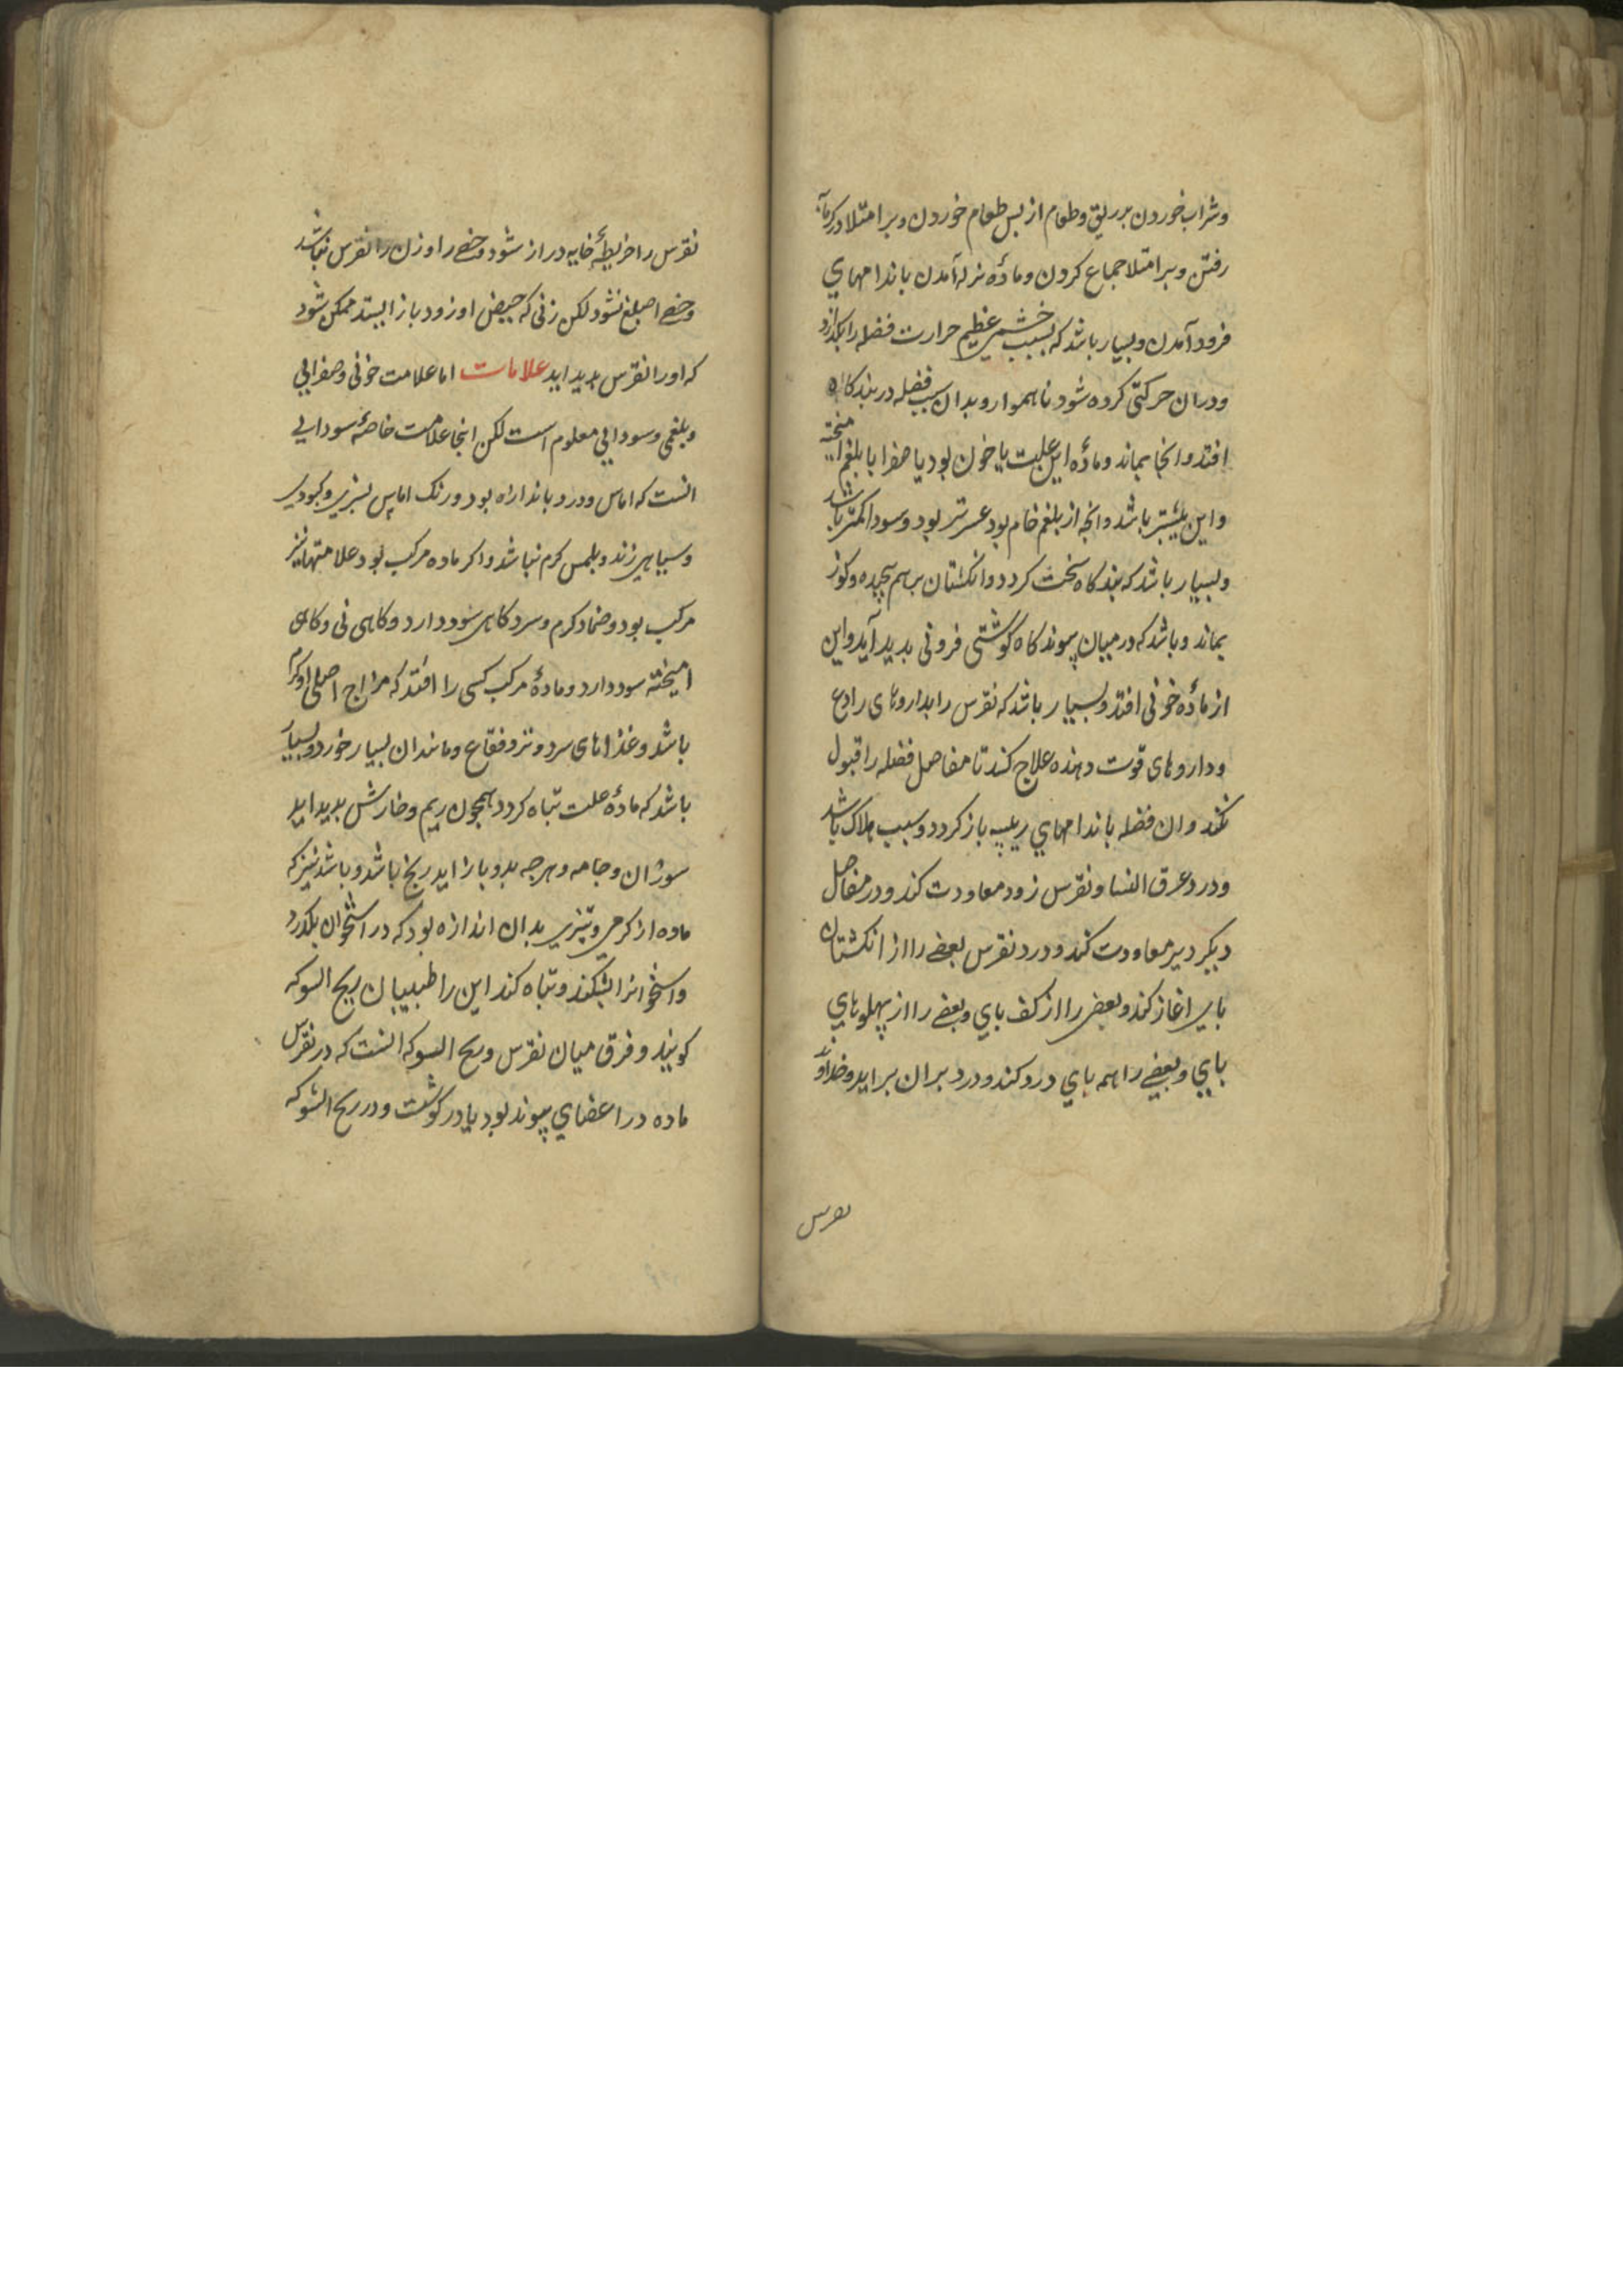 وشراب خوردن بر ریق وطعام از پس طعام خوردن وبر امتلا در کرمابه
رفتن وبر امتلا جماع کردن وماده نزله آمدن باندامهای
فرود آمدن وبسیار باشد که بسبب خشمی عظیم حرارت فضله را بکدازد
ودران حرکتی کرده شود ناهموار وبدان سبب فضله در بندکاه
افتد وانجا بماند وماده این علت یا خون بود یا صفرا یا بلغم امیخته
واین بیشتر باشد وانچه از بلغم خام بود عسرتر بود وسودا کمتر باشد
وبسیار باشد که بندکاه سخت کردد وانکشتان برهم پیچیده وکوز
بماند وباشد که در میان پیوندکاه کوشتی فزونی بدید آید واین
از ماده خونی افتد وبسیار باشد که نقرس را بداروهای رادع
وداروهای قوت دهنده علاج کنند تا مفاصل فضله را قبول
نکند وان فضله باندامهای رییسه باز کردد وسبب هلاک باشد
ودرد عرق النسا ونقرس زود معاودت کند ودر مفاصل
دیکر دیر معاودت کند ودرد نقرس بعضی را از انکشتان
بای اغاز کند وبعضی را از کف بای وبعضی را از پهلوهای
بای وبعضی را همه بای درد کند ودرد بران براید وخداوند
نقرس
نقرس را خریطهٔ خایه دراز شود وخصی را وزن را نقرس نباشد
وخصی اصلع نشود لکن زنی که حیض او زود باز ایستد ممکن شود
که اورا نقرس بدید اید علامات اما علامت خونی وصفرایی
وبلغمی وسودایی معلوم است لکن اینجا علامت خاصهٔ سودایی
انست که اماس ودرد باندازه بود ورنک اماس بسبزی وکبودی
وسیاهی زند وبلمس کرم نباشد واکر ماده مرکب بود علامتها نیز
مرکب بود وضماد کرم وسرد کاهی سود دارد وکاهی نی وکاهی
امیخته سود دارد ومادهٔ مرکب کسی را افتد که مزاج اصلی او کرم
باشد وغذاهای سرد وتر وفقاع ومانند ان بسیار خورد وبسیار
باشد که مادهٔ علت تباه کردد همچون ریم وخارش بدید اید
سوزان وجامه وهرچه بدو باز اید رنج باشد وباشد نیز که
ماده از کرمی وتیزی بدان اندازه بود که در استخوان بکذرد
واستخوانرا بشکند وتباه کند این را طبیبان ریح الشوکه
کویند وفرق میان نقرس وریح الشوکه انست که در نقرس
ماده در اعضای پیوند بود یا در کوشت ودر ریح الشوکه